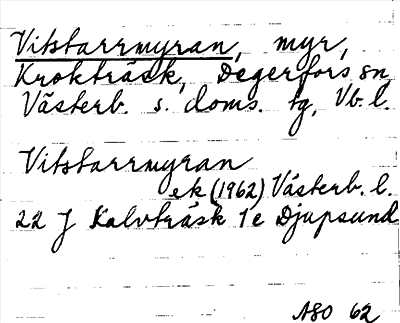 Vitstarrmyran, myr,
Krokträsk, Degerfors sn,
Västerb. s. doms. tg, Vb. l.
Vitstarrmyran
ek (1962) Västerb. l.
22 J Kalvträsk 1e Djupsund
ASO 62